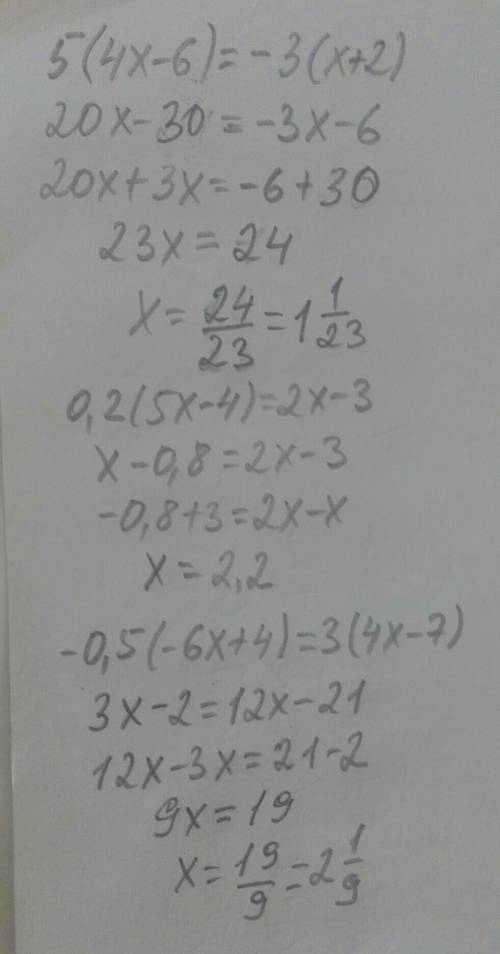 5(4x-6)=-3(x+2)
20x-30=-3x-6
20x+3x=-6+30
23x=24
x=24/23=1 1/23
0,2(5x-4)=2x-3
x-0,8=2x-3
-0,8+3=2x-x
x=2,2
-0,5(-6x+4)=3(4x-7)
3x-2=12x-21
12x-3x=21-2
9x=19
x=19/9=2 1/9